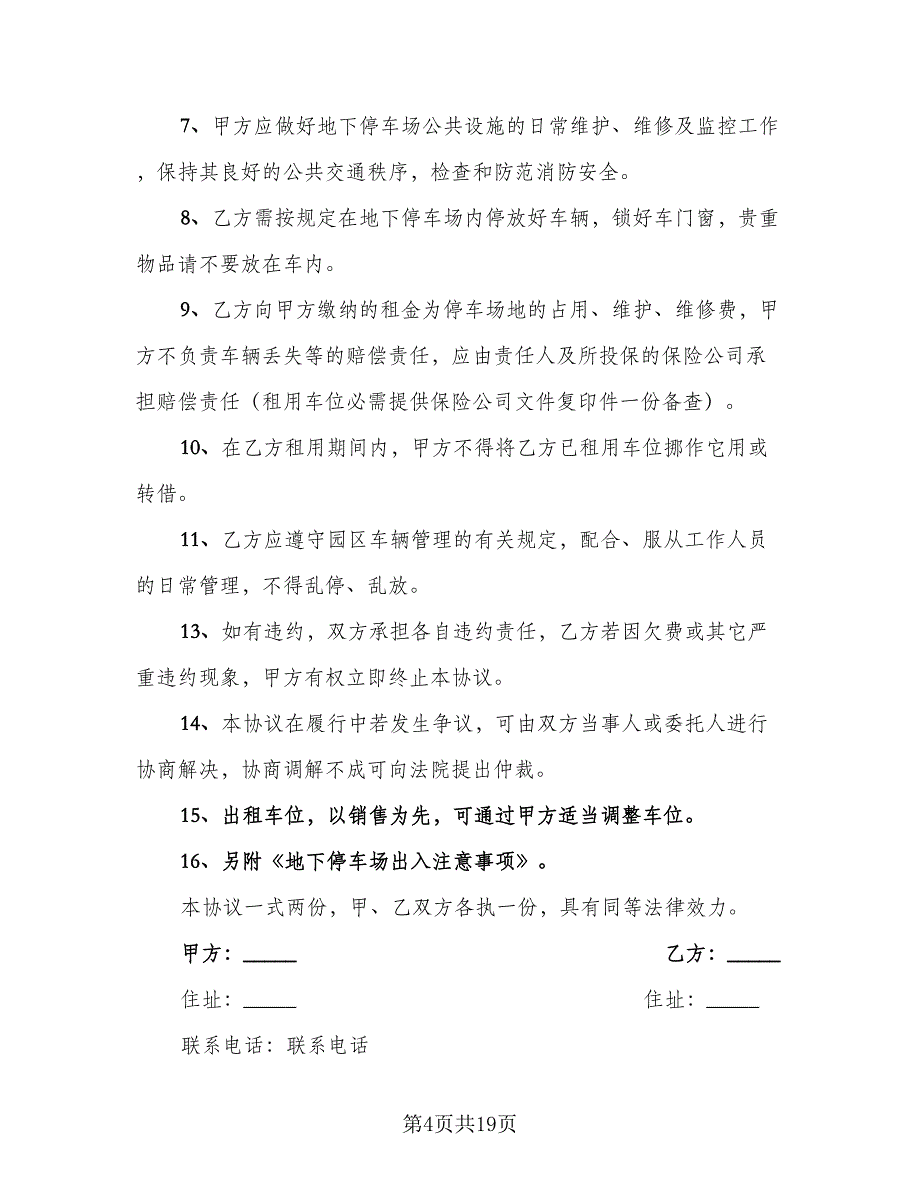 7、甲方应做好地下停车场公共设施的日常维护、维修及监控工作
，保持其良好的公共交通秩序，检查和防范消防安全。
8、乙方需按规定在地下停车场内停放好车辆，锁好车门窗，贵重
物品请不要放在车内。
9、乙方向甲方缴纳的租金为停车场地的占用、维护、维修费，甲
方不负责车辆丢失等的赔偿责任，应由责任人及所投保的保险公司承
担赔偿责任（租用车位必需提供保险公司文件复印件一份备查）。
10、在乙方租用期间内，甲方不得将乙方已租用车位挪作它用或
转借。
11、乙方应遵守园区车辆管理的有关规定，配合、服从工作人员
的日常管理，不得乱停、乱放。
13、如有违约，双方承担各自违约责任，乙方若因欠费或其它严
重违约现象，甲方有权立即终止本协议。
14、本协议在履行中若发生争议，可由双方当事人或委托人进行
协商解决，协商调解不成可向法院提出仲裁。
15、出租车位，以销售为先，可通过甲方适当调整车位。
16、另附《地下停车场出入注意事项》。
本协议一式两份，甲、乙双方各执一份，具有同等法律效力。
甲方：_____ 乙方：_____
住址：_____ 住址：_____
联系电话：联系电话
第4页共19页